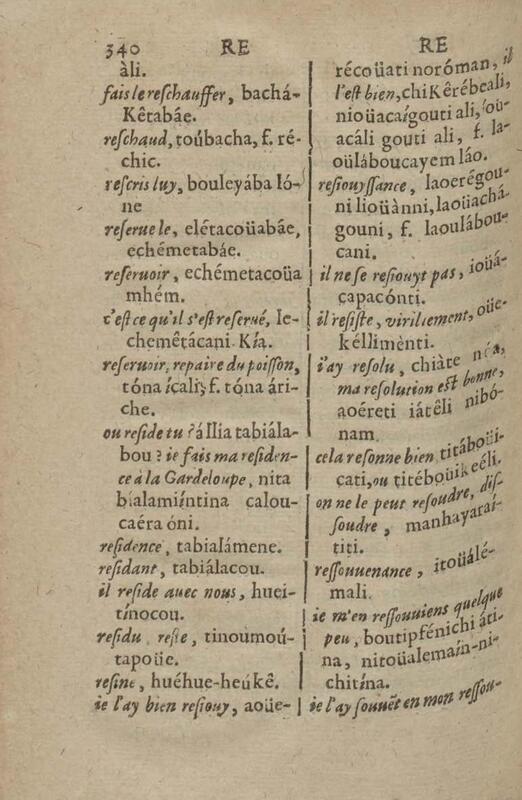 340 RE RE
àli.
fais le reſchauffer, bachá-
Kêtabáe.
reſchaud, toúbacha, f. ré-
chic.
reſcris luy, bouleyába ló-
ne
reſerue le, elétacoüabáe,
echémetabáe.
reſeruoir, echémetacoüa
mhém.
c'eſt ce qu'il s'eſt reſerué, le-
chemêtácani Kía.
reſeruoir, repaire du poiſſon,
tóna ícali; f. tóna ári-
che.
ou reſide tu? állia tabiála-
bou? ie fais ma reſiden-
ce à la Gardeloupe, nita
bialamiíntina calou-
caéra óni.
reſidence, tabialámene.
reſidant, tabiálacou.
il reſide auec nous, huei-
tínocou.
reſidu, reſte, tinoumoú-
tapoüe.
reſine, huéhue-heúkê.
ie l'ay bien reſiouy, aoüe-
récoüati noróman, il
l'eſt bien, chiKêrébeali,
nioüacaígouti ali, oü-
acáli gouti ali, f. la-
oüláboucayem láo.
reſiouyſſance, laoerégou-
ni lioüànni, laoüachá-
gouni, f. laoulábou-
cani.
il ne ſe reſiouyt pas, ioüá-
çapacónti.
il reſiſte, virillement, oüe-
kéllimènti.
i'ay reſolu, chiàte néa,
ma reſolution eſt bonne,
aoéreti iátêli nibó-
nam.
cela reſonne bien titáboüi-
çati, ou titéboüikeéli.
on ne le peut reſoudre, diſ-
ſoudre, manhayaraí-
titi.
reſſouuenance, itoüálé-
mali.
ie m'en reſſouuiens quelque
peu, boutipfénichi áti-
na, nitoüalemaín-ni-
chitína.
ie l'ay ſouuēt en mon reſſou-